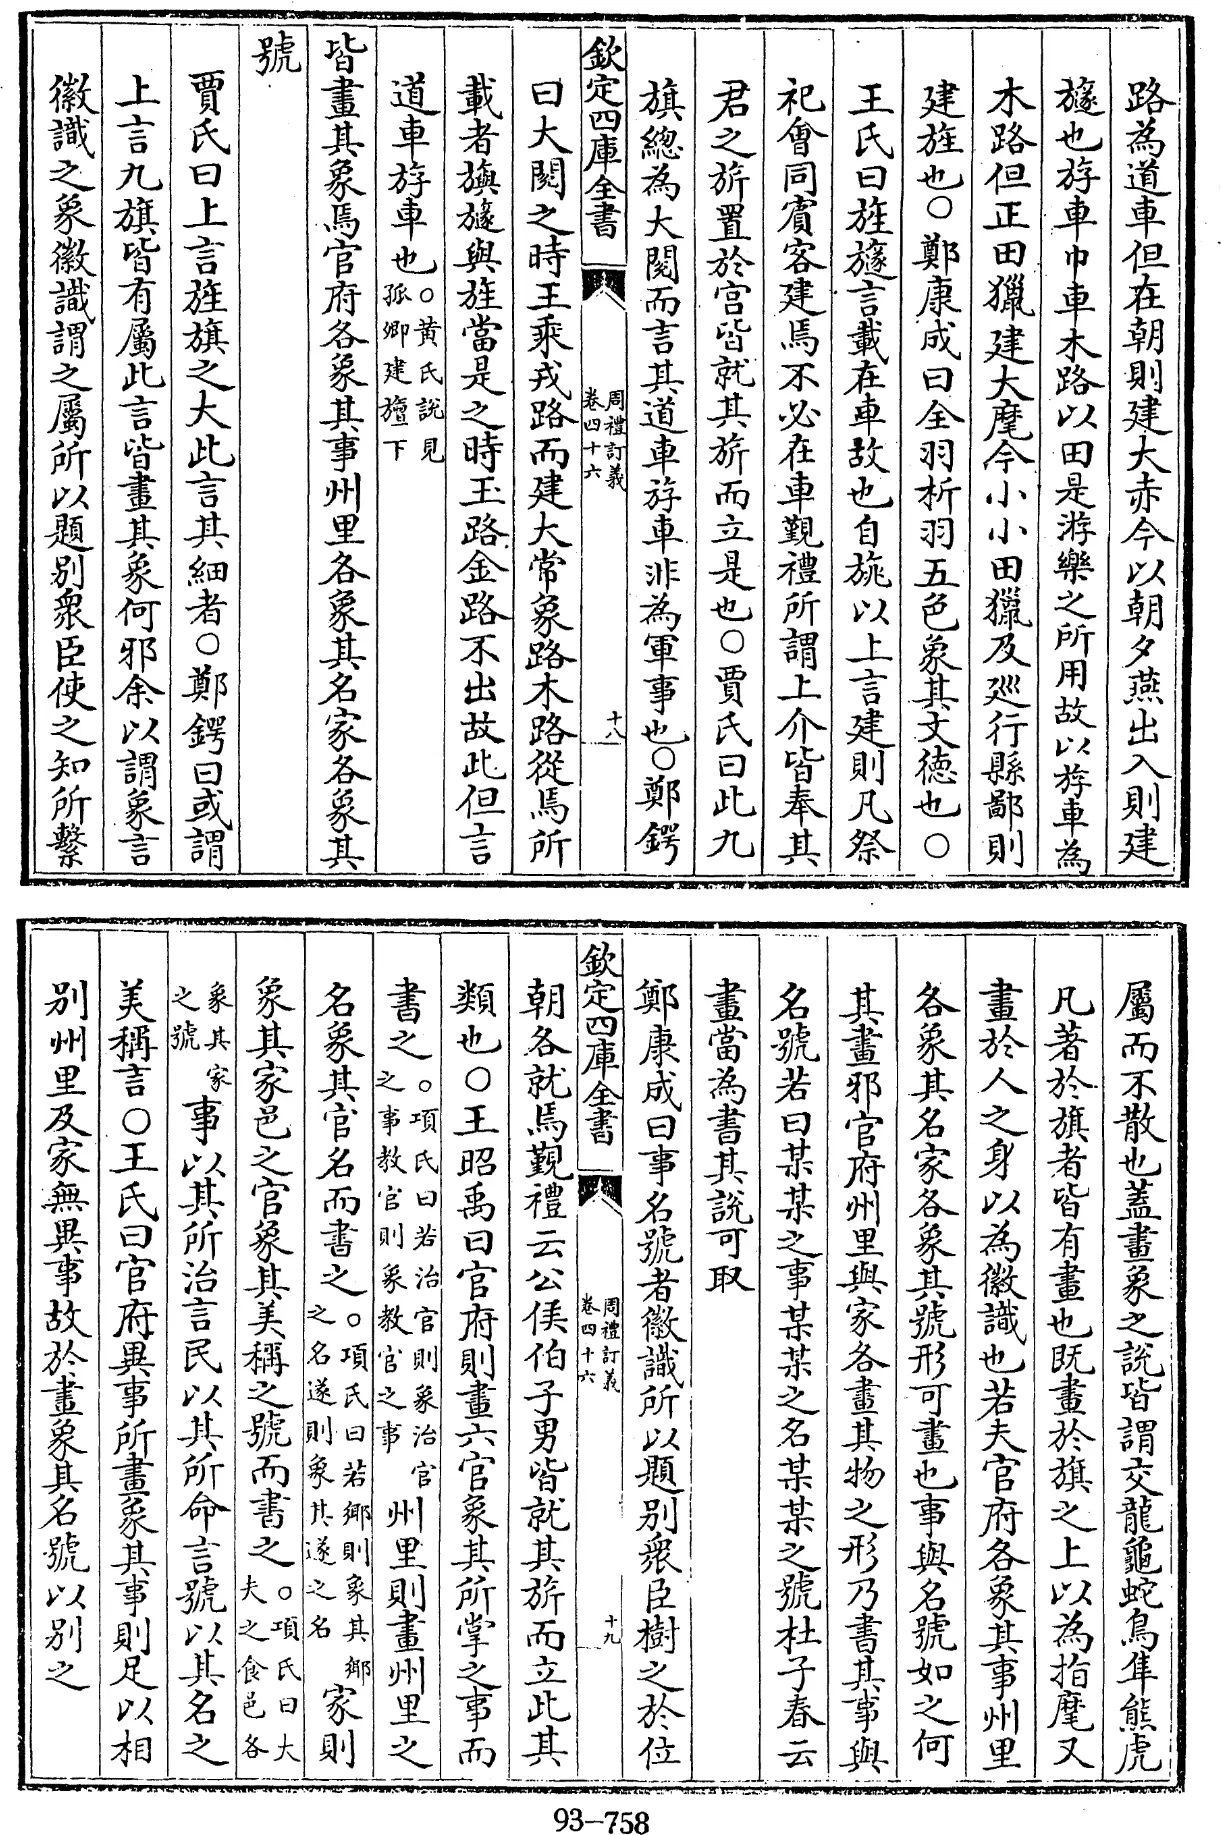 路為道車但在朝則建大赤今以朝夕燕出入則建
旞也斿車巾車木路以田是游樂之所用故以斿車為
木路但正田獵建大麾今小小田獵及廵行縣鄙則
建旌也○鄭康成曰全羽析羽五色象其文德也○
王氏曰旌旞言載在車故也自旐以上言建則凡祭
祀㑹同賓客建焉不必在車覲禮所謂上介皆奉其
君之旂置於宫皆就其旂而立是也○賈氏曰此九
旗總為大閱而言其道車斿車非為軍事也○鄭鍔
欽定四庫全書
周禮訂義
卷四十六
十八
曰大閱之時王乘戎路而建大常象路木路從焉所
載者旟旞與旌當是之時玉路金路不出故此但言
道車斿車也○黄氏說見
孤卿建旜下
皆畫其象焉官府各象其事州里各象其名家各象其
號
賈氏曰上言旌旗之大此言其細者○鄭鍔曰或謂
上言九旗皆有屬此言皆畫其象何邪余以謂象言
徽識之象徽識謂之屬所以題别衆臣使之知所繫
屬而不散也蓋畫象之說皆謂交龍龜蛇鳥隼熊虎
凡著於旗者皆有畫也既畫於旗之上以為指麾又
畫於人之身以為徽識也若夫官府各象其事州里
各象其名家各象其號形可畫也事與名號如之何
其畫邪官府州里與家各畫其物之形乃書其事與
名號若曰某某之事某某之名某某之號杜子春云
畫當為書其說可取
鄭康成曰事名號者徽識所以題别衆臣樹之於位
欽定四庫全書
周禮訂義
卷四十六
十九
朝各就焉覲禮云公侯伯子男皆就其旂而立此其
類也○王昭禹曰官府則畫六官象其所掌之事而
書之○項氏曰若治官則象治官
之事教官則象教官之事
州里則畫州里之
名象其官名而書之○項氏曰若鄉則象其鄉
之名遂則象其遂之名
家則
象其家邑之官象其美稱之號而書之○項氏曰大
夫之食邑各
象其家
之號
事以其所治言民以其所命言號以其名之
美稱言○王氏曰官府異事所畫象其事則足以相
别州里及家無異事故於畫象其名號以别之
93-758